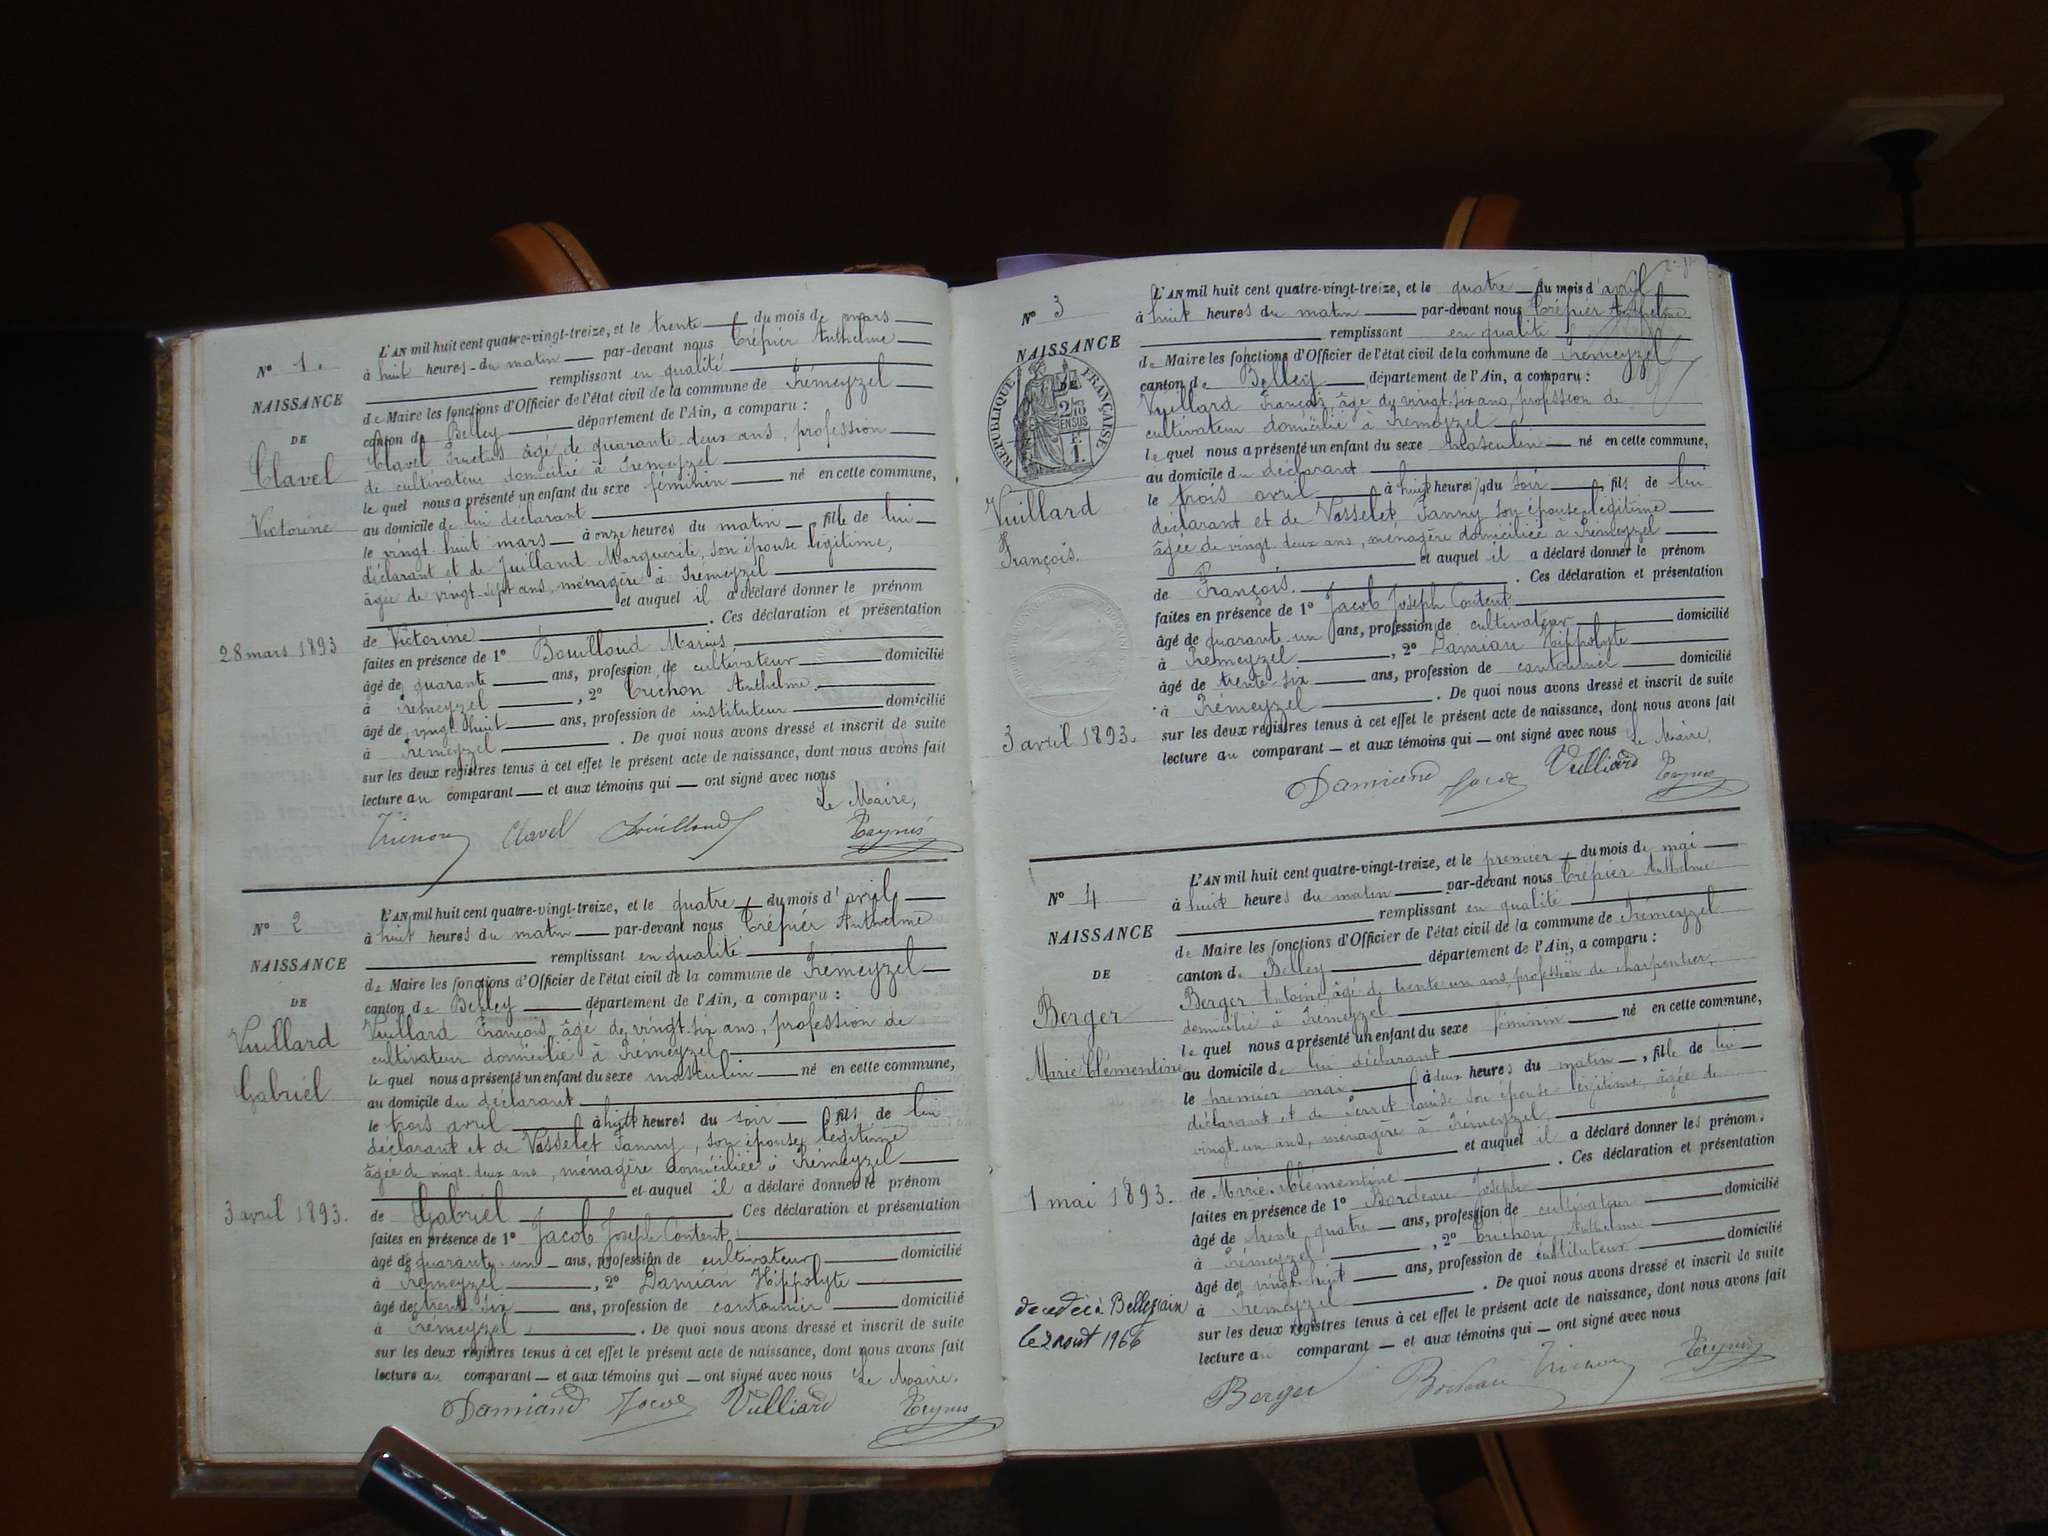 N° 1.
NAISSANCE
DE
Clavel
Victorine
28 mars 1893
L'AN mil huit cent quatre-vingt-treize, et le trente du mois de mars
à huit heures du matin par-devant nous Crépier Anthelme
remplissant en qualité
de Maire les fonctions d'Officier de l'état civil de la commune de Prémeyzel
canton de Belley département de l'Ain, a comparu :
Clavel Fructus âgé de quarante deux ans, profession
de cultivateur domicilié à Prémeyzel
le quel nous a présenté un enfant du sexe féminin né en cette commune,
au domicile de lui déclarant
le vingt huit mars à onze heures du matin, fille de lui
déclarant et de Juilland Marguerite, son épouse légitime,
âgée de vingt-sept ans, ménagère à Prémeyzel
et auquel il a déclaré donner le prénom
de Victorine. Ces déclaration et présentation
faites en présence de 1° Bouilloud Marius
âgé de quarante ans, profession de cultivateur domicilié
à Prémeyzel, 2° Truchon Anthelme
âgé de vingt huit ans, profession de instituteur domicilié
à Prémeyzel. De quoi nous avons dressé et inscrit de suite
sur les deux registres tenus à cet effet le présent acte de naissance, dont nous avons fait
lecture au comparant et aux témoins qui ont signé avec nous
Le Maire,
Clavel Bouilloud
N° 2
NAISSANCE
DE
Vuillard
Gabriël
3 avril 1893.
L'AN mil huit cent quatre-vingt-treize, et le quatre du mois d'avril
à huit heures du matin par-devant nous Crépier Anthelme
remplissant en qualité
de Maire les fonctions d'Officier de l'état civil de la commune de Prémeyzel
canton de Belley département de l'Ain, a comparu :
Vuillard François âgé de vingt-six ans, profession de
cultivateur domicilié à Prémeyzel
le quel nous a présenté un enfant du sexe masculin né en cette commune,
au domicile du déclarant
le trois avril à huit heures du soir fils de lui
déclarant et de Vasselet Fanny, son épouse légitime
âgée de vingt-deux ans, ménagère domiciliée à Prémeyzel
et auquel il a déclaré donner le prénom
de Gabriël. Ces déclaration et présentation
faites en présence de 1° Jacob Joseph Content
âgé de quarante-un ans, profession de cultivateur domicilié
à Prémeyzel, 2° Damian Hippolyte
âgé de trente six ans, profession de cantonnier domicilié
à Prémeyzel. De quoi nous avons dressé et inscrit de suite
sur les deux registres tenus à cet effet le présent acte de naissance, dont nous avons fait
lecture au comparant et aux témoins qui ont signé avec nous Le Maire.
Damiand Jacob Vulliard
N° 3
NAISSANCE
DE
RÉPUBLIQUE FRANÇAISE
2/10
EN SUS
1.
Vuillard
François.
3 avril 1893.
L'AN mil huit cent quatre-vingt-treize, et le quatre du mois d'avril
à huit heures du matin par-devant nous Crépier Anthelme
remplissant en qualité
de Maire les fonctions d'Officier de l'état civil de la commune de Prémeyzel
canton de Belley département de l'Ain, a comparu :
Vuillard François âgé de vingt-six ans, profession de
cultivateur domicilié à Prémeyzel
le quel nous a présenté un enfant du sexe masculin né en cette commune,
au domicile du déclarant
le trois avril à huit heures du soir, fils de lui
déclarant et de Vasselet Fanny son épouse légitime
âgée de vingt-deux ans, ménagère domiciliée à Prémeyzel
et auquel il a déclaré donner le prénom
de François. Ces déclaration et présentation
faites en présence de 1° Jacob Joseph Content
âgé de quarante un ans, profession de cultivateur domicilié
à Prémeyzel, 2° Damian Hippolyte
âgé de trente six ans, profession de cantonnier domicilié
à Prémeyzel. De quoi nous avons dressé et inscrit de suite
sur les deux registres tenus à cet effet le présent acte de naissance, dont nous avons fait
lecture au comparant et aux témoins qui ont signé avec nous Le Maire.
Damiand Jacob Vulliard
N° 4
NAISSANCE
DE
Berger
Marie Clémentine
1 mai 1893.
décédée à Belley, ain
le 2 août 1966
L'AN mil huit cent quatre-vingt-treize, et le premier du mois de mai
à huit heures du matin par-devant nous Crépier Anthelme
remplissant en qualité
de Maire les fonctions d'Officier de l'état civil de la commune de Prémeyzel
canton de Belley département de l'Ain, a comparu :
Berger Antoine, âgé de trente-un ans, profession de charpentier,
domicilié à Prémeyzel
le quel nous a présenté un enfant du sexe féminin né en cette commune,
au domicile de lui déclarant
le premier mai à deux heures du matin, fille de lui
déclarant et de Perret Louise son épouse légitime, âgée de
vingt un ans, ménagère à Prémeyzel
et auquel il a déclaré donner les prénoms
de Marie-Clémentine. Ces déclaration et présentation
faites en présence de 1° Bordeau Joseph
âgé de trente quatre ans, profession de cultivateur domicilié
à Prémeyzel, 2° Truchon Anthelme
âgé de vingt-huit ans, profession de instituteur domicilié
à Prémeyzel. De quoi nous avons dressé et inscrit de suite
sur les deux registres tenus à cet effet le présent acte de naissance, dont nous avons fait
lecture au comparant et aux témoins qui ont signé avec nous
Berger Bordeau